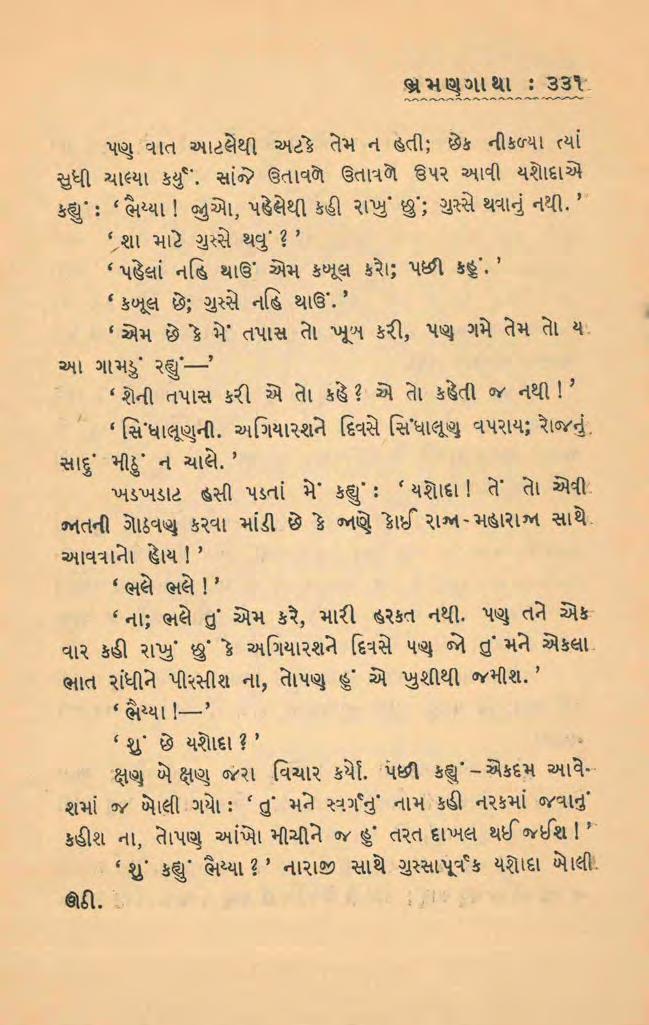 ભ્રમણગાથા : ૩૩૧
પણ વાત આટલેથી અટકે તેમ ન હતી; છેક નીકળ્યા ત્યાં
સુધી ચાલ્યા કર્યું. સાંજે ઉતાવળે ઉતાવળે ઉપર આવી યશોદાએ
કહ્યું : ‘ ભૈય્યા ! જુઓ, પહેલેથી કહી રાખું છું; ગુસ્સે થવાનું નથી. ’
‘ શા માટે ગુસ્સે થવું ? ’
‘ પહેલાં નહિ થાઉં એમ કબૂલ કરો; પછી કહું. ’
‘ કબૂલ છે; ગુસ્સે નહિ થાઉં. ’
‘ એમ છે કે મેં તપાસ તો ખૂબ કરી, પણ ગમે તેમ તો ય
આ ગામડું રહ્યું—’
‘ શેની તપાસ કરી એ તો કહે ? એ તો કહેતી જ નથી ! ’
‘ સિંધાલૂણની. અગિયારશને દિવસે સિંધાલૂણ વપરાય; રોજનું
સાદું મીઠું ન ચાલે. ’
ખડખડાટ હસી પડતાં મેં કહ્યું : ‘ યશોદા ! તેં તો એવી
જાતની ગોઠવણ કરવા માંડી છે કે જાણે કોઈ રાજા-મહારાજા સાથે
આવવાનો હોય ! ’
‘ ભલે ભલે ! ’
‘ ના; ભલે તું એમ કરે, મારી હરકત નથી. પણ તને એક
વાર કહી રાખું છું કે અગિયારશને દિવસે પણ જો તું મને એકલા
ભાત રાંધીને પીરસીશ ના, તોપણ હું એ ખુશીથી જમીશ. ’
‘ ભૈય્યા !—’
‘ શું છે યશોદા ? ’
ક્ષણ બે ક્ષણ જરા વિચાર કર્યો. પછી કહ્યું – એકદમ આવે-
શમાં જ બોલી ગયો : ‘ તું મને સ્વર્ગનું નામ કહી નરકમાં જવાનું
કહીશ ના, તોપણ આંખો મીચીને જ હું તરત દાખલ થઈ જઈશ ! ’
‘ શું કહ્યું ભૈય્યા ? ’ નારાજી સાથે ગુસ્સાપૂર્વક યશોદા બોલી
ઊઠી.